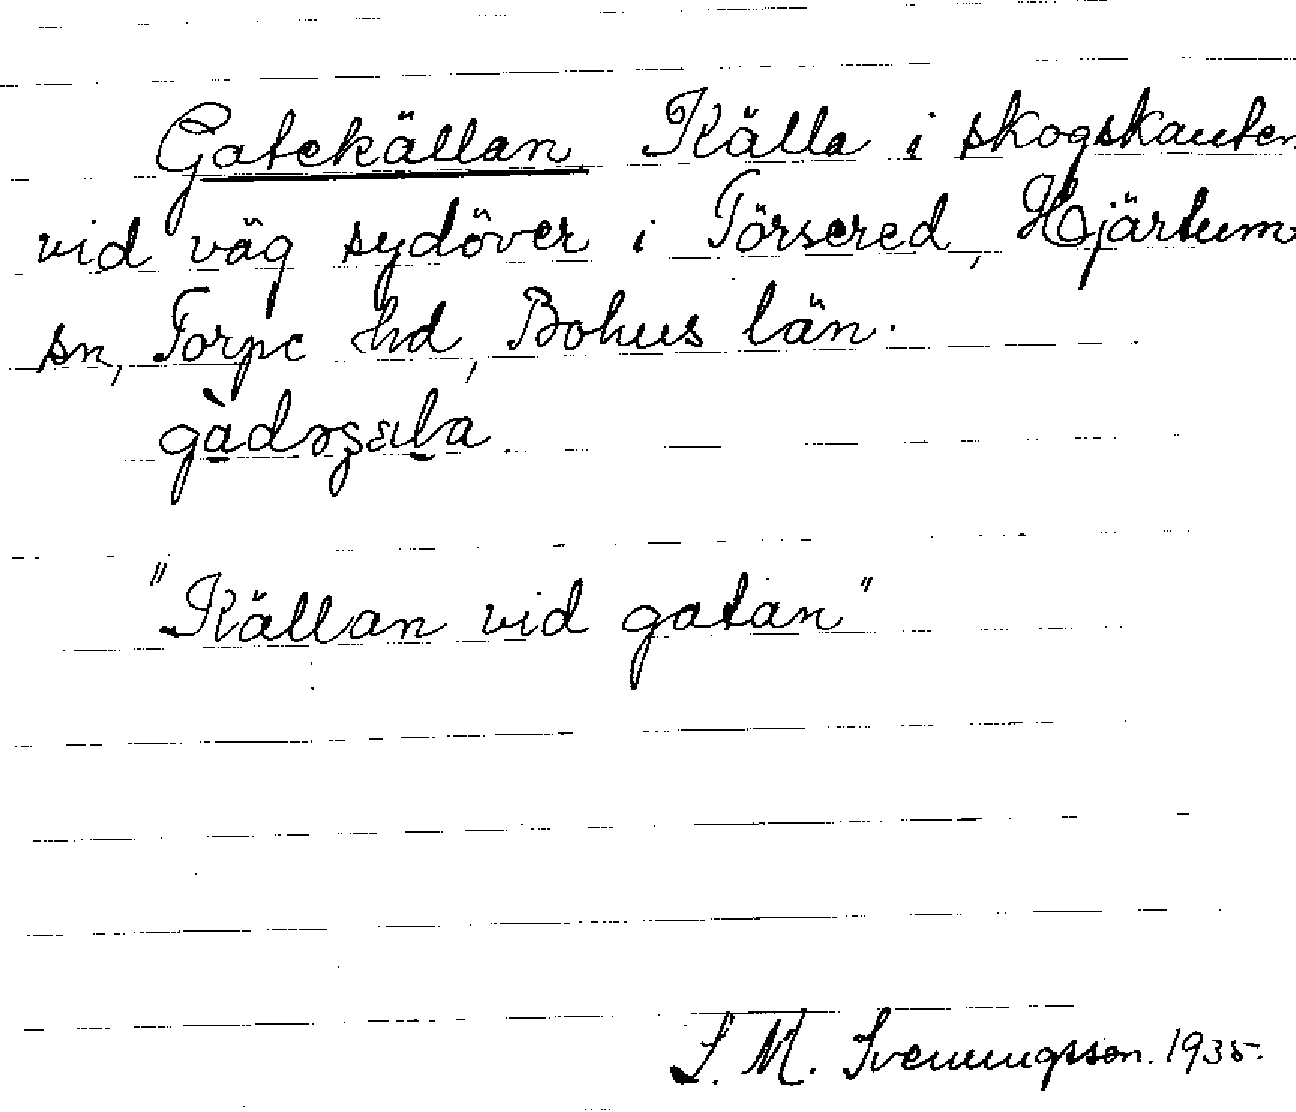 Gatekällan. Källa i skogskanten
vid väg sydöver i Törsered, Hjärtum
sn, Torpe hd, Bohus län.
"Källan vid gatan"
S. M. Svenningsson. 1935.